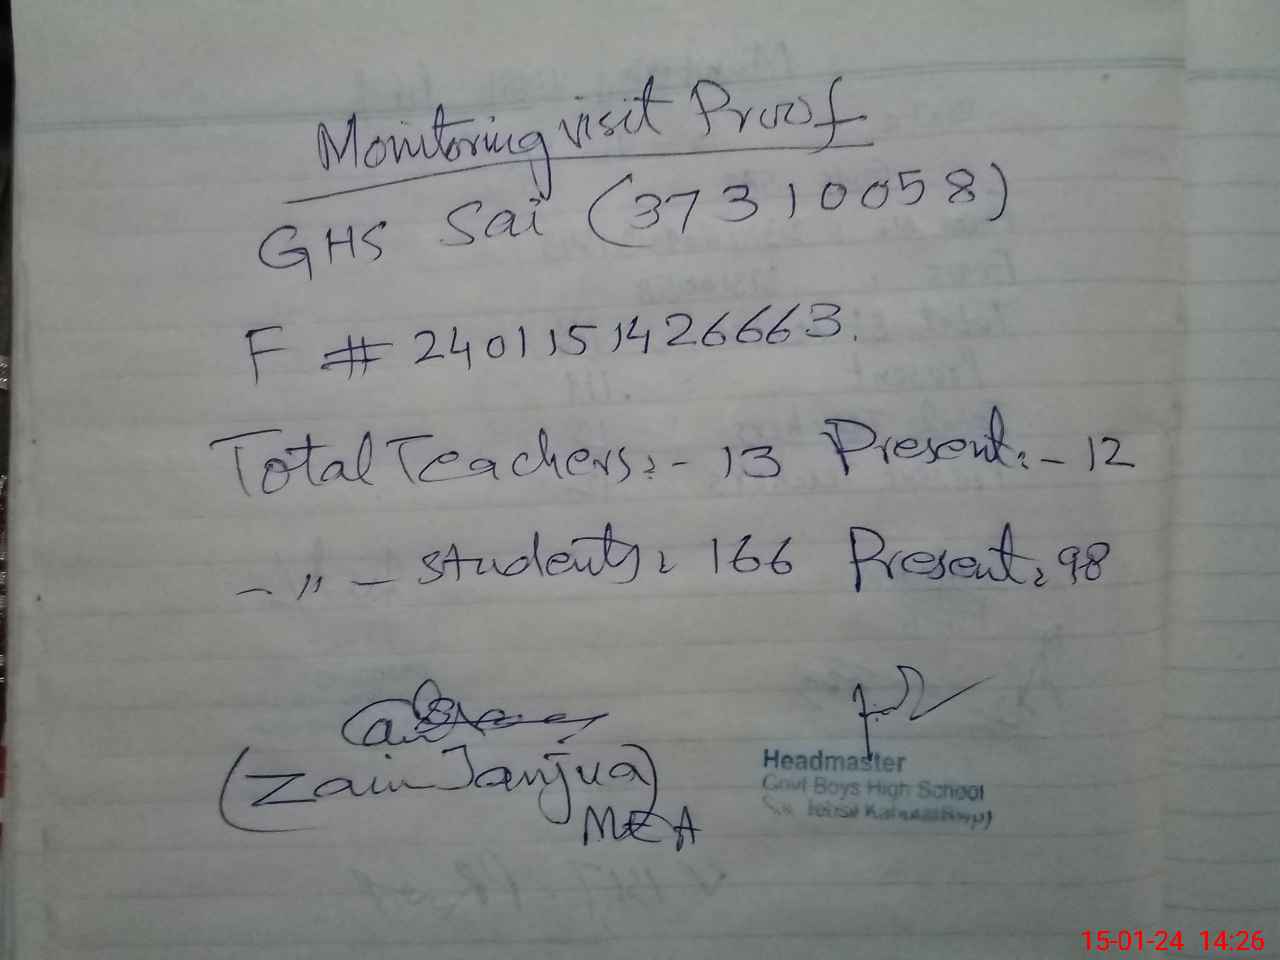 Monitoring visit Proof
GHS Sai (37310058)
F # 2401151426663.
Total Teachers:- 13 Present:- 12
-〃- students: 166 Present: 98
(Zain Janjua)
MEA
Headmaster
Govt Boys High School
15-01-24 14:26